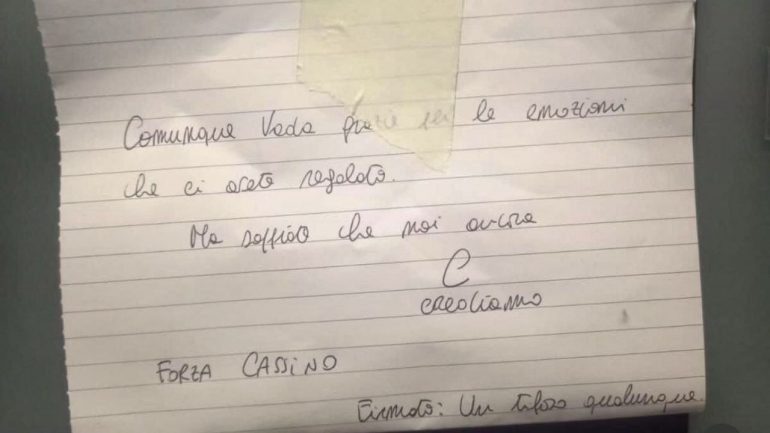 Comunque Vada grazie per le emozioni
che ci avete regalato.
Ma sappiate che noi ancora
C
crediamo
FORZA CASSINO
Firmato: Un tifoso qualunque.